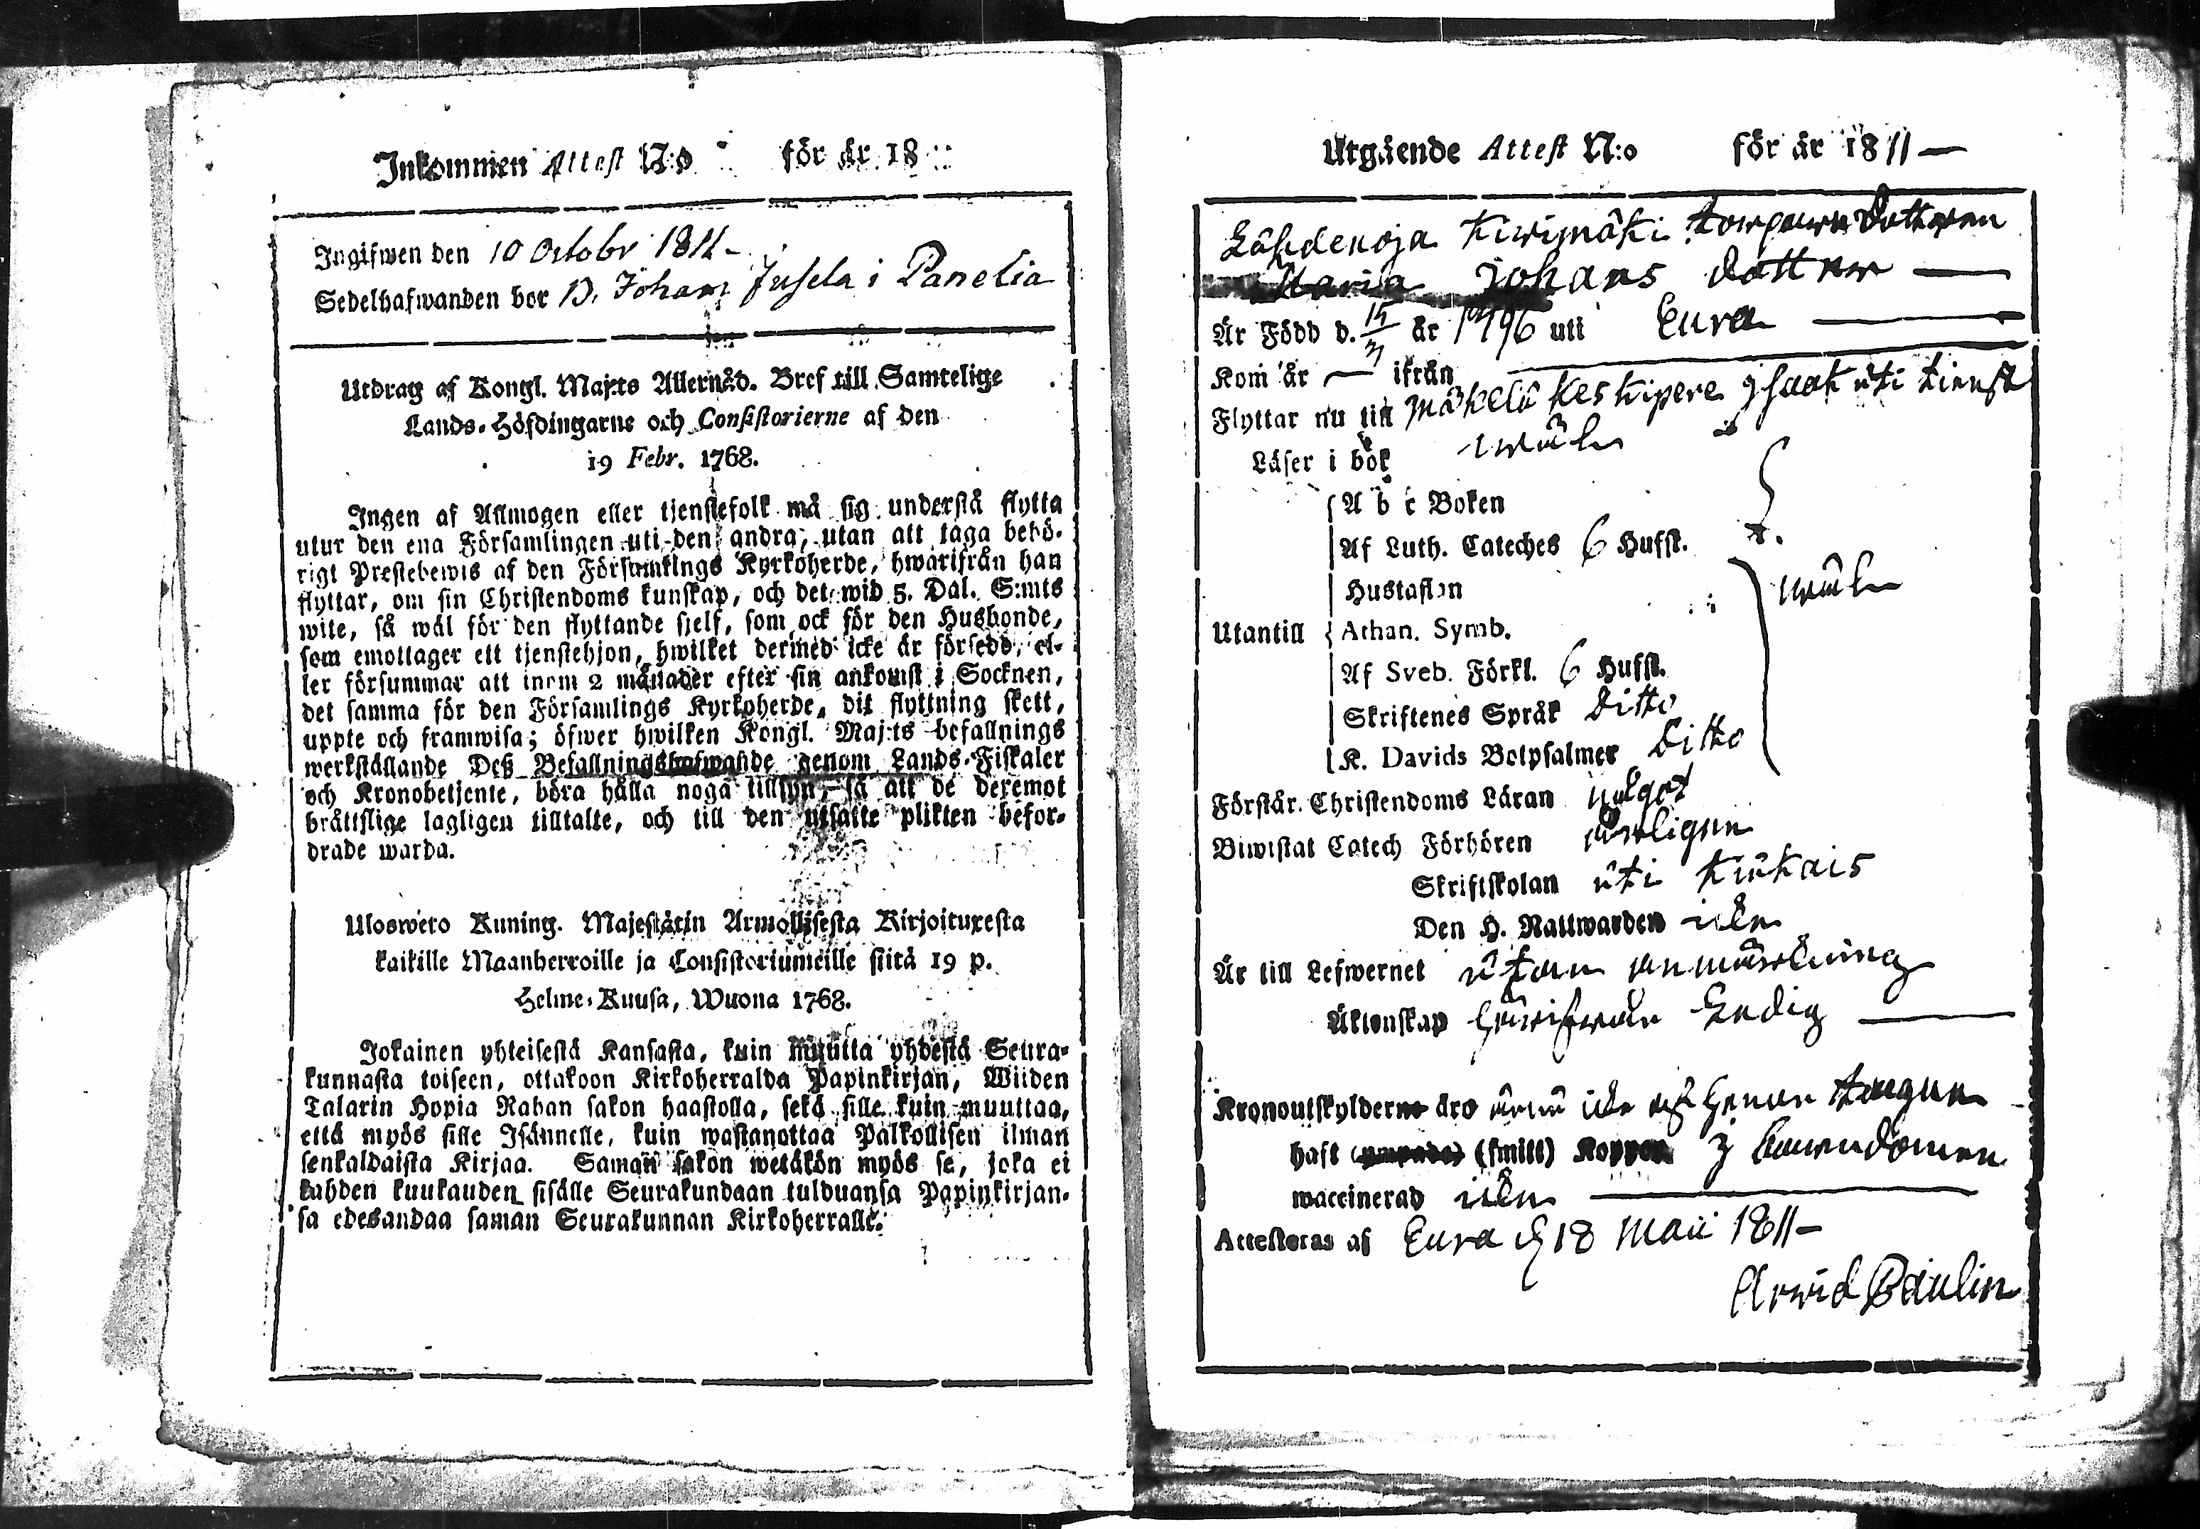 Inkommen Attest N:o för år 18
Ingifwen den 10 Octobr 1811 -
Sedelhafwanden bor B. Johan Jusela i Panelia
Utdrag af Kongl. Maj:ts Allernåd. Bref till Samtelige
Lands-Höfdingarne och Consistorierne af den
19 Febr. 1768.
Ingen af Allmogen eller tjenstefolk må sig understå flytta
utur den ena Församlingen uti den andra, utan att taga behö-
rigt Prestebewis af den Församlings Kyrkoherde, hwarifrån han
flyttar, om sin Christendoms kunskap, och det wid 5. Dal. S:mts
wite, så wäl för den flyttande sjelf, som ock för den Husbonde,
som emottager ett tjenstehjon, hwilket dermed icke är försedd, el-
ler försummar att inom 2 månader efter sin ankomst i Socknen,
det samma för den Församlings Kyrkoherde, dit flyttning skett,
uppte och framwisa; öfwer hwilken Kongl. Maj:ts befallnings
werkställande Deß Befallningshafwande genom Lands-Fiskaler
och Kronobetjente, böra hålla noga tillsyn, så att de deremot
bråttslige lagligen tilltalte, och till den utsatte plikten befor-
drade warda.
Ulosweto Kuning. Majestätin Armollisesta Kirjoituxesta
kaikille Maanherroille ja Consistoriumeille siitä 19 p.
Helme-Kuusa, Wuona 1768.
Jokainen yhteisestä Kansasta, kuin muutta yhdestä Seura-
kunnasta toiseen, ottakoon Kirkoherralda Papinkirjan, Wiiden
Talarin Hopia Rahan sakon haastolla, sekä sille kuin muuttaa,
että myös sille Isännelle, kuin wastanottaa Palkollisen ilman
senkaldaista Kirjaa. Saman sakon wetäkön myös se, joka ei
kahden kuukauden sisälle Seurakundaan tulduansa Papinkirjan-
sa edesandaa saman Seurakunnan Kirkoherralle.
Utgående Attest N:o för år 1811 —
Lähdenoja Kiwimäki torpare Dotteren
Maria Johans dotter —
Är Född d. 15/3 år 1796 uti Eura —
Kom år — ifrån
Flyttar nu till Mäkelä Keskipere uti tienst
Läser i bok
A b c Boken
Af Luth. Cateches 6 Hufst.
Hustaflan
Utantill Athan. Symb.
Af Sveb. Förkl. 6 Hufst.
Skriftenes Språk Ditto
K. Davids Botpsalmer Ditto
Förstår Christendoms Läran något
Biwistat Catech Förhören årligen
Skriftskolan uti Kiukais
Den H. Nattwarden
Är till Lefwernet utan anmärkning
Äktenskap Ledig —
Kronoutskylderne äro
haft (smitt) Koppor i barndomen
waccinerad —
Attesteras af Eura d 18 Maii 1811 —
Arwid Paulin